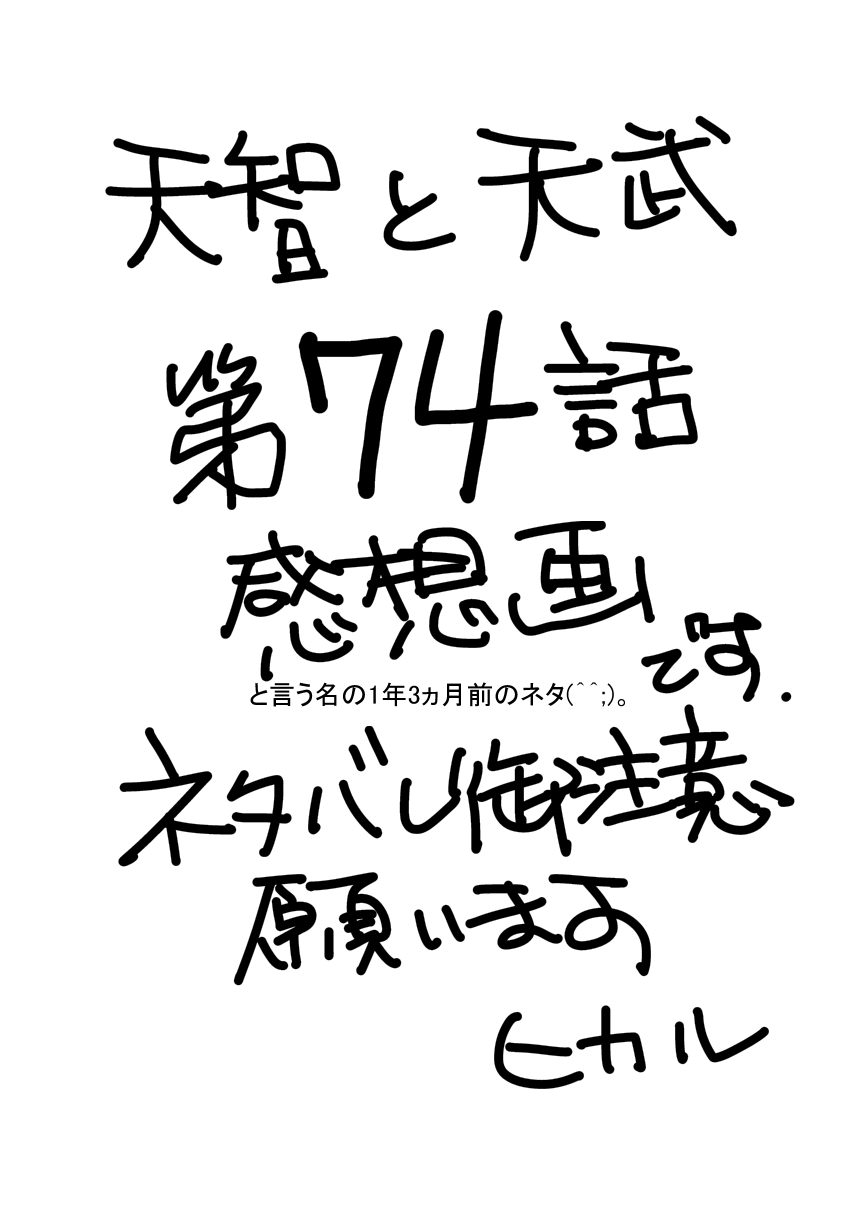 天智と天武
第74話
感想画です.
と言う名の1年3ヵ月前のネタ(^^;)。
ネタバレ御注意
願います
ヒカル